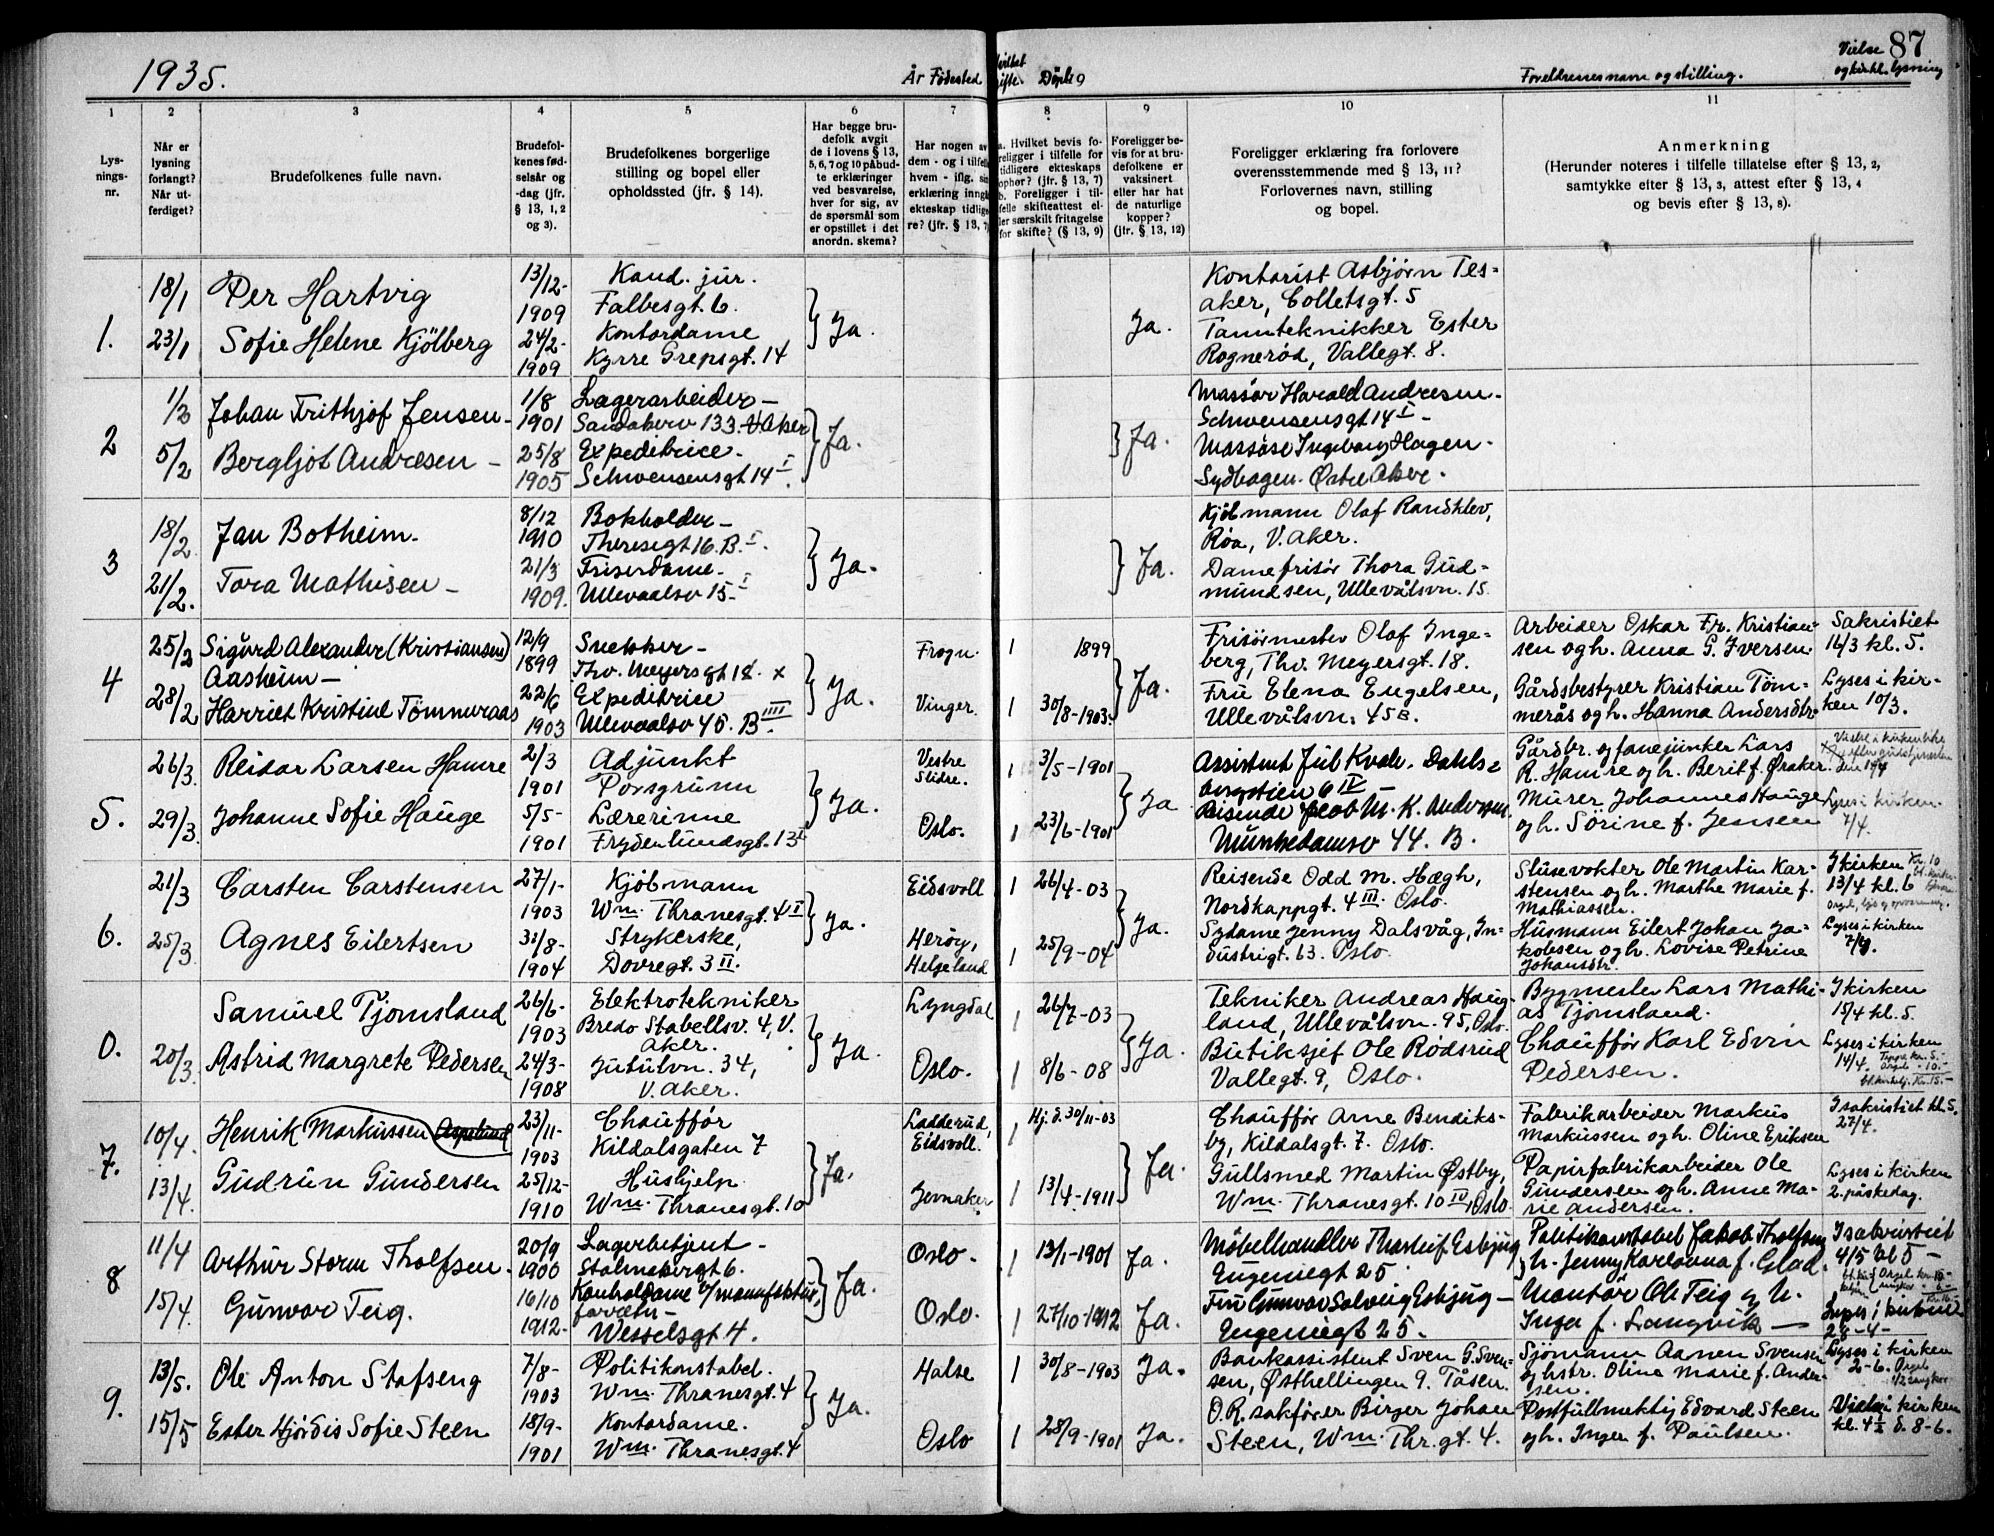 1935.
År Fødested
Døpt 9
Foreldrenes navn og stilling.
Vielse 87
og kirkl. lysning
1 2 3 4 5 6 7 8 9 10 11
Lys-
nings-
nr.
Når er
lysning
forlangt?
Når ut-
ferdiget?
Brudefolkenes fulle navn.
Brudefol-
kenes fød-
selsår og
-dag (jfr.
§ 13, 1, 2
og 3).
Brudefolkenes borgerlige
stilling og bopel eller
opholdssted (jfr. § 14).
Har begge bru-
defolk avgit
de i lovens § 13,
5, 6, 7 og 10 påbud-
te erklæringer
ved besvarelse,
hver for sig, av
de spørsmål som
er opstillet i det
anordn. skema?
Har nogen av
dem - og i tilfelle
hvem - iflg. sin
erklæring inngå
ekteskap tidlige-
re? (jfr. § 13, 7)
a. Hvilket bevis fo-
religger i tilfelle for
tidligere ekteskaps
ophør? (jfr. § 13, 7)
b. Foreligger i til-
felle skifteattest el-
ler særskilt fritagelse
for skifte? (§ 13, 9)
Foreligger be-
vis for at bru-
defolkene er
vaksinert
eller har hat
de naturlige
kopper?
(jfr. § 13, 12)
Foreligger erklæring fra forlovere
overensstemmende med § 13, 11?
Forlovernes navn, stilling
og bopel.
Anmerkning
(Herunder noteres i tilfelle tillatelse efter § 13, 2,
samtykke efter § 13, 3, attest efter § 13, 4
og bevis efter § 13, 8).
1.
18/1 Per Hartvig
23/1 Sofie Helene Kjölberg
13/12-
1909
24/2-
1909
Kand. jur.
Falbesgt. 6.
Kontordame
Kyrre Grepsgt. 14
Ja.
Ja.
Kontorist Asbjørn Tes-
aker, Colletsgt. 5
Tannteknikker Ester
Rognerød, Vallegt. 8.
2
1/2 Johan Frithjof Jensen -
5/2 Bergljot Andresen -
1/8
1901
25/8
1905
Lagerarbeider -
Sandakerv 133 V Aker
Expeditrice -
Schwensensgt 14 I.
Ja.
Ja.
Massør Harald Andresen -
Schwensensgt 14 I -
Massøse Ingeborg Hagen -
Sydhagen. Østre Aker.
3
18/2 Jan Botheim -
21/2. Tora Mathisen -
8/12
1910
21/3
1909.
Bokholder -
Theresegt 16. B. I.
Friserdame -
Ullevaalsv 15 I
Ja.
Ja.
Kjøbmann Olaf Randklev,
Røa, V. Aker.
Damefrisør Thora Gud-
mundsen, Ullevålsvn. 15
4
25/2 Sigurd Alexander (Kristiansen)
Aasheim -
28/2 Harriet Kristine Tömmeraas
12/9
1899
22/6
1903
Snekker -
Thv. Meyersgt 18. x
Expeditrice
Ullevaalsv 45. B IIII.
Ja.
Frogn.
Vinger.
1 1899
1 30/8-1903.
Ja.
Frisörmester Olaf Inge-
berg, Thv. Meyersgt. 18.
Fru Elena Engelsen,
Ullevålsvn. 45 B.
Arbeider Oskar Fr. Kristian-
sen og h. Anna G. Iversen
Gårdsbestyrer Kristian Töm-
merås og h. Hanna Andersdtr.
Sakristiet
16/3 kl. 5.
Lyses i kir-
ken 10/3.
5.
26/3 Reidar Larsen Hamre
29/3. Johanne Sofie Hauge
2/3
1901
5/5-
1901
Adjunkt
Porsgrunn
Lærerinne
Frydenlundsgt. 13 I
Ja.
Vestre
Slidre.
Oslo.
1 3/5-1901
1 23/6-1901
Ja
Assistent Jul Kvale. Dahls-
bergstien 6 IV -
Reisende Jacob M. K. Andersen.
Munkedamsv 44. B.
Gårdbr. og fanejunker Lars
R. Hamre og h. Berit f. Øraker
Murer Johannes Hauge
og h. Sørine f. Jensen
Lyses i kirken.
7/4.
6.
21/3 Carsten Carstensen
25/3 Agnes Eilertsen
27/1-
1903
31/8-
1904
Kjöbmann
Wm. Thranesgt. 4 I
Strykerske,
Dovregt. 3 II.
Ja.
Eidsvoll
Herøy,
Helgeland
1 26/4-03
1 25/9-04
Ja.
Reisende Odd M. Hægh,
Nordkappgt. 4 III. Oslo.
Sydame Jenny Dalsvåg, In-
dustrigt. 63. Oslo.
Slusevokter Ole Martin Kar-
stensen og h. Marthe Marie f.
Mathiassen.
Husmann Eilert Johan Ja-
kobsen og h. Lovise Petrine
Johansdtr.
I kirken
13/4 kl. 6
Lyses i kirken
7/4.
0.
Samuel Tjomsland
20/3. Astrid Margrete Pedersen
26/6-
1903
24/3-
1908
Elektrotekniker
Bredo Stabellsv. 4, V.
Aker.
Jutulvn. 34,
V. Aker.
Ja.
Lyngdal
Oslo.
1 26/7-03
1 8/6-08
Ja.
Tekniker Andreas Haug-
land, Ullevålsvn. 95, Oslo.
Butiksjef Ole Rödsrud
Vallegt. 9, Oslo.
Bygmester Lars Mathi-
as Tjömsland.
Chauffør Karl Edvin
Pedersen.
I kirken
15/4 kl. 5.
Lyses i kirken
14/4.
7.
10/4 Henrik Markussen
13/4. Gudrun Gundersen
23/11-
1903
25/12-
1910
Chauffør
Kildalsgaten 7
Hushjelp
Wm. Thranesgt. 10
Ja.
Ladderud,
Eidsvoll.
Jevnaker
1 Hj. d. 30/11-03
1 13/4-1911
Ja.
Chauffør Arne Bendiks-
by, Kildalsgt. 7. Oslo.
Gullsmed Martin Østby,
Wm. Thranesgt. 10 IV, Oslo.
Fabrikarbeider Markus
Markussen og h. Oline Eriksen
Papirfabrikarbeider Ole
Gundersen og h. Anne Ma-
rie Andersen.
I sakristiet kl. 5.
27/4.
Lyses i kirken
2. påskedag.
8
11/4 Arthur Storm Tholfsen.
15/4. Gunvor Teig.
20/9
1900
16/10
1912-
Lagerbetjent -
Stolmakergt 6.
Wesselsgt 4.
Ja.
Oslo.
Oslo.
1 13/1-1901
1 27/10-1912
Ja.
Ja.
Møbelhandler Thorleif Esbjug
Eugeniegt 25
Fru Gunvor Solveig Esbjug -
Eugeniegt 25.
Politikonstabel Jakob Tholfsen
og h. Jenny Karlovna f. Glad.
Montör Ole Teig og h.
Inga f. Langvik -
I sakristiet
4/5 kl 5 -
Lyses i kirken
28-4-
9.
13/5. Ole Anton Stafseng
15/5 Ester Hjørdis Sofie Steen
7/8-
1903
18/9-
1901
Politikonstabel.
Wm. Thranesgt. 4
Kontordame.
Wm. Thranesgt. 4
Ja.
Halse
Oslo
1 30/8-1903
1 28/9-1901
Ja.
Ja.
Bankassistent Sven G. Sven-
sen, Østhellingen 9. Tåsen.
O.R. sakfører Birger Johan
Steen, Wm. Thr. gt. 4.
Sjömann Aanen Svensen
og hstr. Oline Marie f. Ander-
sen.
Postfullmektig Edvard Steen
og h. Inger f. Paulsen.
Lyses i kirken
2-6. Orgel
Vielse i kirken
kl. 4½ d. 8-6.